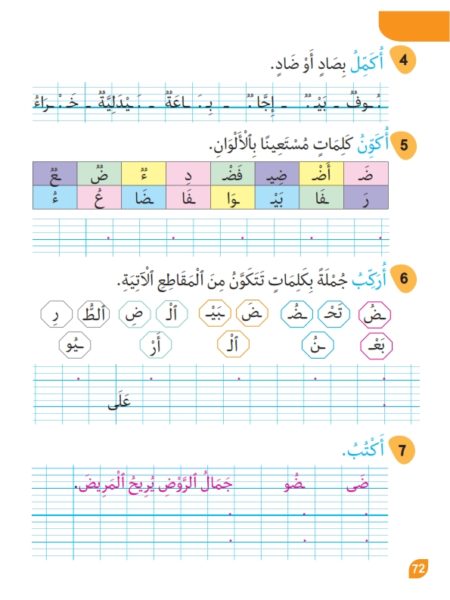 4 أُكَمِّلُ بِصَادٍ أَوْ ضَادٍ.
ـُـوفٌ - بَيْـ ـٌ - إِجَّا ـٌ - بِـ ـَـاعَةٌ - ـَـيْدَلِيَّةٌ - خَـ ـْـرَاءُ
5 أُكَوِّنُ كَلِمَاتٍ مُسْتَعِينًا بِٱلْأَلْوَانِ.
ضَـ أَضْـ ضِيـ فَضْـ دِ ءٌ ضٌ ـعٌ
رَ ـفَا بَيْـ ـوَا ـفَا ـضَا عُ ءُ
6 أُرَكِّبُ جُمْلَةً بِكَلِمَاتٍ تَتَكَوَّنُ مِنَ ٱلْمَقَاطِعِ ٱلْآتِيَةِ.
ـضُ تَحْـ ـضُـ ـضَ ـبَيْـ ٱلْـ ضِ ٱلطُّـ رِ
بَعْـ ـنُ ٱلْـ أَرْ ـيُو
عَلَى
7 أَكْتُبُ.
ضَى ضُو جَمَالُ ٱلرَّوْضِ يُرِيحُ ٱلْمَرِيضَ.
72